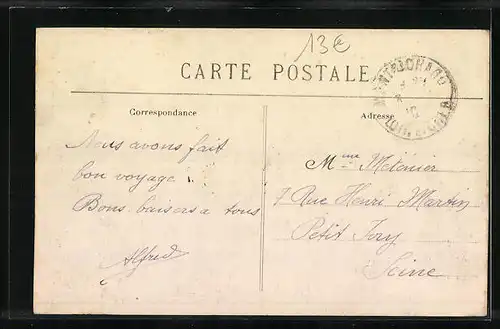 13€
CARTE POSTALE
Correspondance
Adresse
Nous avons fait
bon voyage.
Bons baisers a tous
Alfred
Mme Méténier
7 Rue Henri Martin
Petit Ivry
Seine